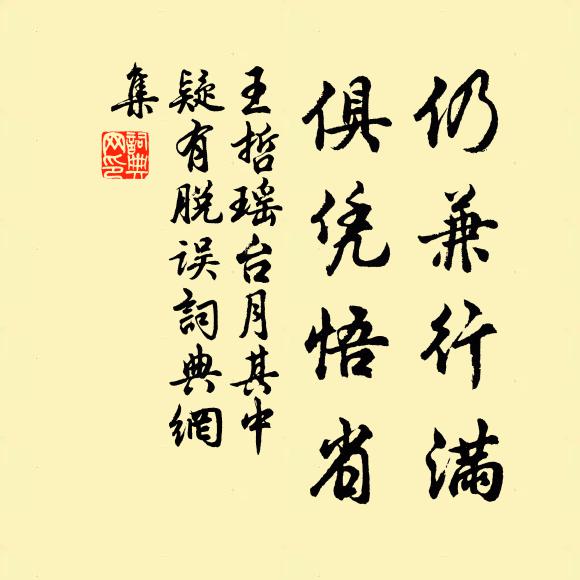 仍兼行滿
俱凭悟省
王哲瑶台月其中
疑有脫误詞典網
集
詞典网印